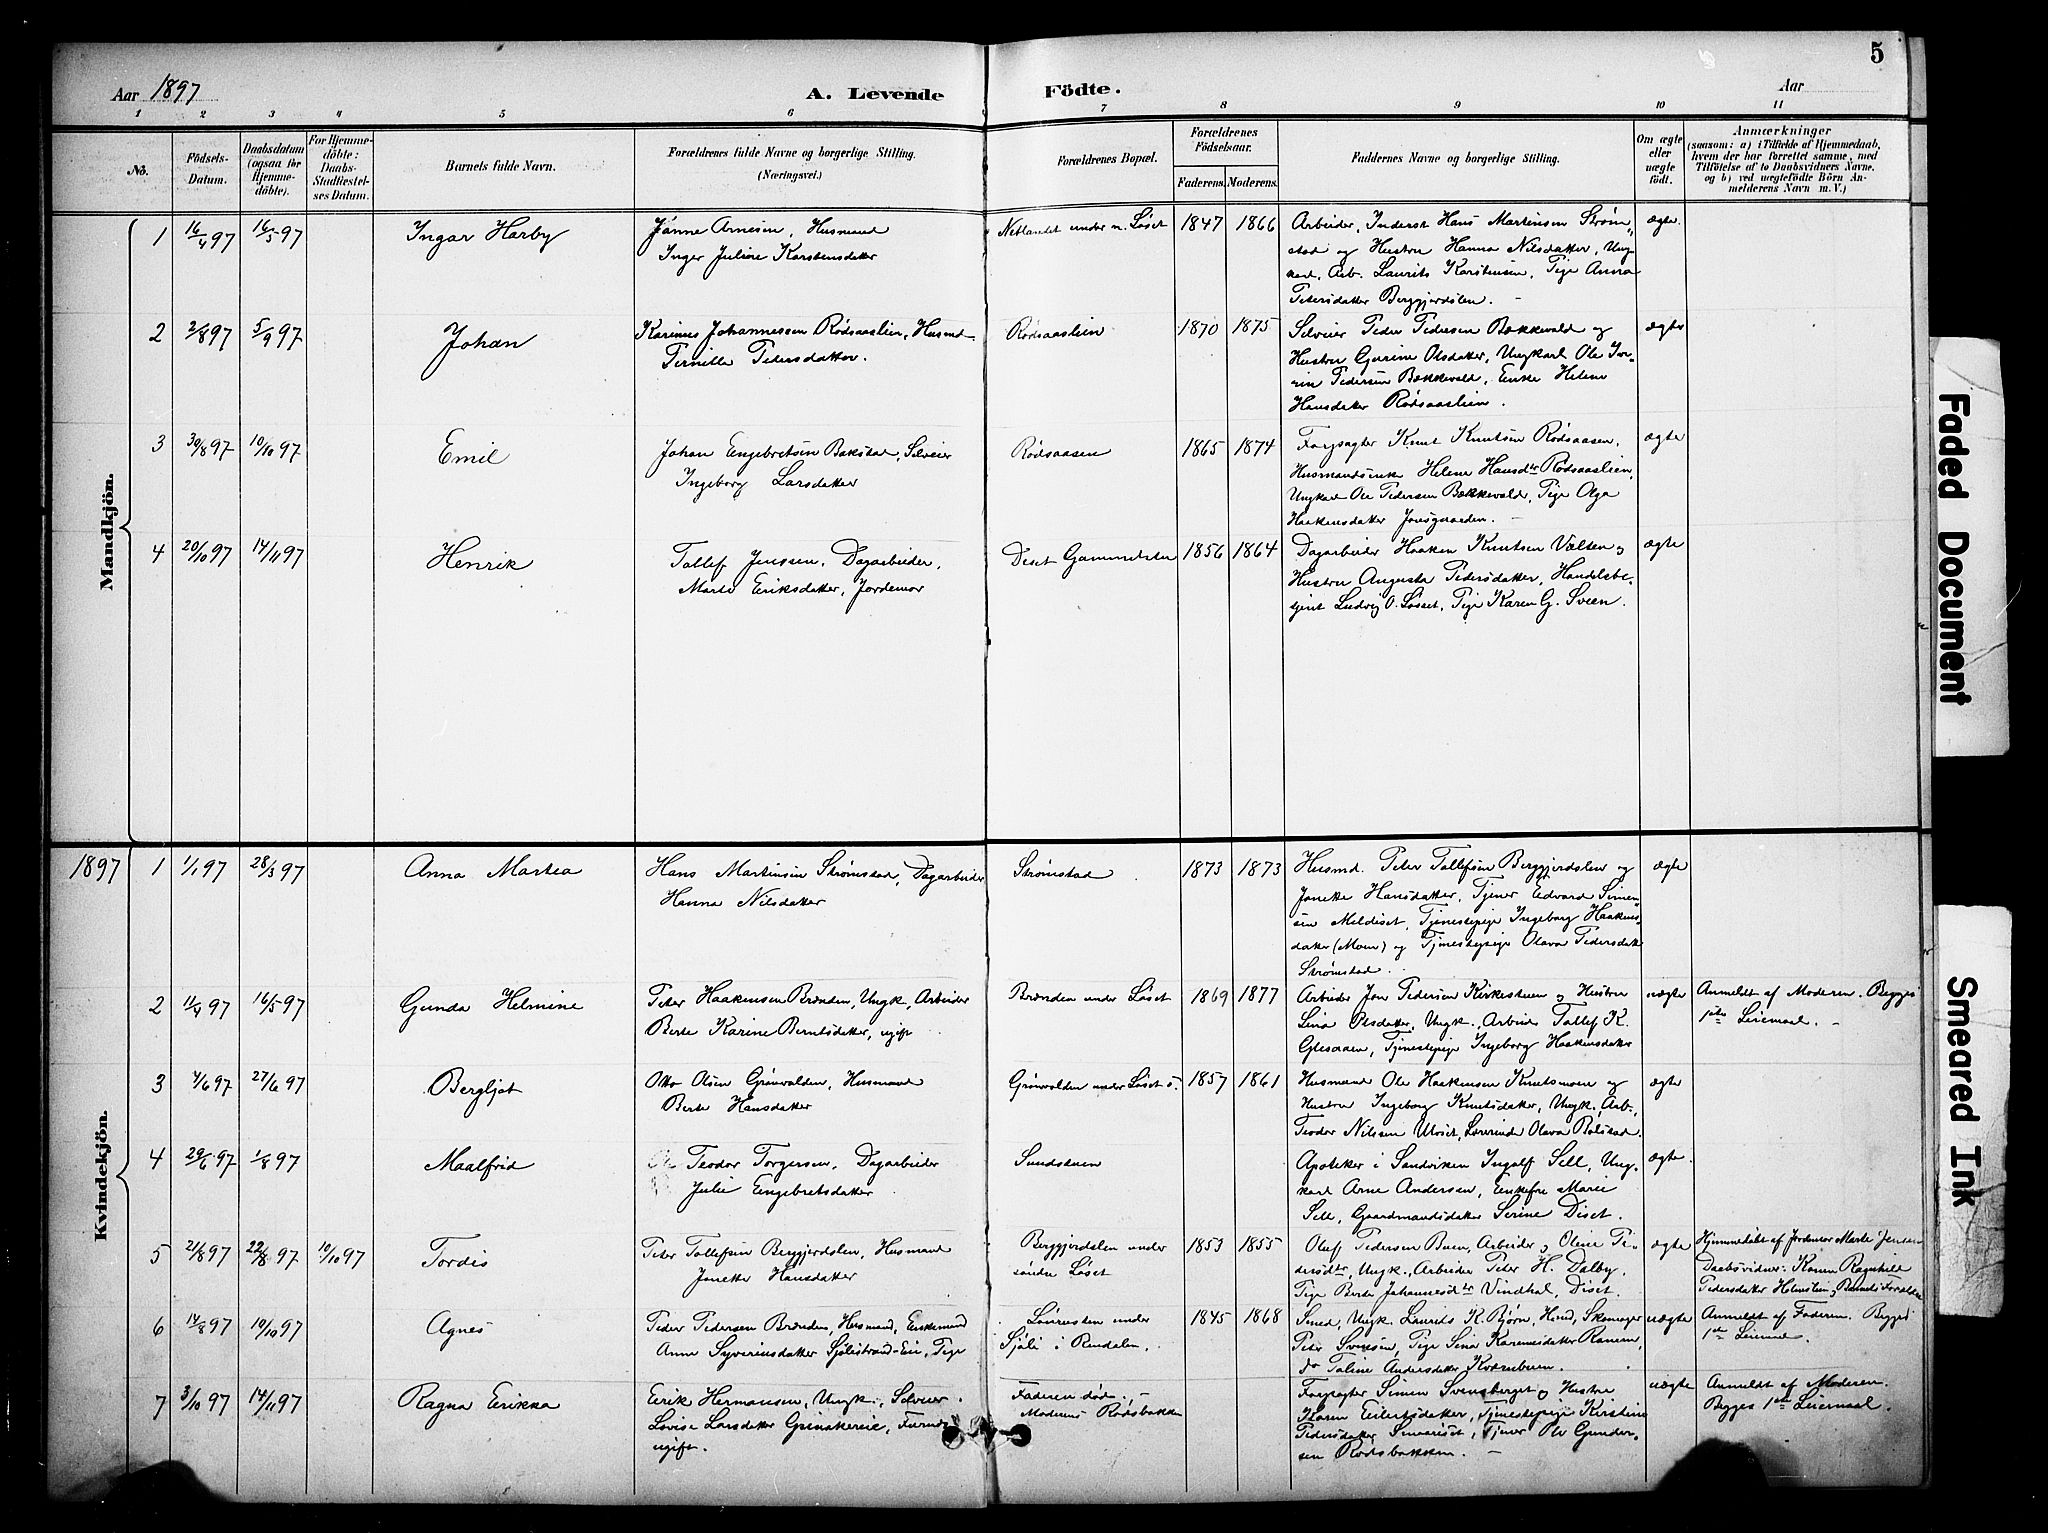 5
Aar 1897
A. Levende Födte.
Aar
1 2 3 4 5 6 7 8 9 10 11
No.
Födsels-Datum.
Daabsdatum (ogsaa for Hjemmedöbte).
For Hjemmedöbte: Daabs-Stadfæstelses Datum.
Barnets fulde Navn.
Forældrenes fulde Navne og borgerlige Stilling. (Næringsvei.)
Forældrenes Bopæl.
Forældrenes Födselsaar.
Faderens. Moderens.
Faddernes Navne og borgerlige Stilling.
Om ægte eller uægte födt.
Anmærkninger
(saasom: a) i Tilfælde af Hjemmedaab, hvem der har forrettet samme, med Tilföielse af to Daabsvidners Navne, og b) ved uægtefödte Börn Anmelderens Navn m. V.)
Mandkjön.
1 16/4 97 16/5 97 Ingar Harby
Jönne Arnesen, Husmand
Inger Juliane Karstensdatter
Neblandet under n. Løset 1847 1866
Arbeider, Inderst Hans Martinsen Strøm-
stad og Hustru Hanna Nilsdatter, Ung-
karl, Arb. Laurits Karstensen, Pige Anna
Petersdatter Berggjerdslen.
ægte.
2 2/8 97 5/9 97 Johan
Karinus Johannessen Rødsaaslien, Husmd
Pernille Pedersdatter.
Rødsaaslien 1870 1875
Selveier Peder Pedersen Bækkevold og
Hustru Gurine Olsdatter, Ungkarl Ole Iver-
Pedersen Bækkevold, Enke Helene
Hansdatter Rødsaaslien.
ægte
3 30/8 97 10/10 97 Emil
Johan Engebretsen Bakstad, Selveier
Ingeborg Larsdatter
Rødsaasen 1865 1874
Forpagter Knut Knutsen Rødsaasen,
Husmandsenke Helene Hansdtr Rødsaaslien,
Ungkarl Ole Pedersen Bækkevold, Pige Olga
Haakensdatter Joresgaarden.
ægte
4 20/10 97 14/11 97 Henrik
Tollef Jenssen, Dagarbeider,
Marte Eriksdatter, Jordemor
Diset Gammelsten 1856 1864
Dagarbeider Haaken Knutsen Vælten og
Hustru Augusta Pedersdatter, Handelsbe-
tjent Ludvig O. Løsset, Pige Karen G. Sveen.
ægte
Kvindekjön.
1897 1 1/1 97 28/3 97 Anna Martea
Hans Martinsen Strømstad, Dagarbeider
Hanna Nilsdatter
Strømstad 1873 1873
Husmd. Peter Tollefsen Berggjerdslen og
Jonette Hansdatter, Tjener Edvard Simen-
sen Meldiset, Tjenestepige Ingeborg Haakens-
datter (Moen) og Tjenestepige Olava Pedersdatt
Strømstad.
ægte
2 11/4 97 16/5 97 Gunda Helmine
Peter Haakensen Brænden, Ungk., Arbeider
Berte Karine Berntsdatter, ugift
Brænden under Løset 1869 1877
Arbeider Jon Pedersen Kirkestuen og Hustru
Lina Olsdatter, Ungk., Arbeider Tollef K.
Glesaaen, Tjenestepige Ingeborg Haakensdatter
uægte
Anmeldt af Moderen. Begges
1ste Leiermaal.
3 4/6 97 27/6 97 Bergljot
Otto Olsen Grønvolden, Husmand
Berte Hansdatter
Grønvolden under Løset s. 1857 1861
Husmand Ole Haakensen Knutsmoen og
Hustru Ingeborg Knutsdatter, Ungk., Arb.,
Teodor Nilssen Utset, Lærerinde Olava Bolstad.
ægte
4 29/6 97 1/8 97 Maalfrid
Teodor Torgersen, Dagarbeider
Julie Engebretsdatter
Sundstuen
Apoteker i Sandviken Ingolf Sell, Ung-
karl Arne Andersen, Enkefru Marie
Sell, Gaardmandsdatter Serine Diset.
ægte.
5 21/8 97 22/8 97 10/10 97 Tordis
Peter Tollefsen Berggjerdslen, Husmand
Jonette Hansdatter
Berggjerdslen under
søndre Løset 1853 1855
Oluf Pedersen Buen, Arbeider og Oline Pe-
dersdtr, Ungk., Arbeider Peter H. Dalby,
Pige Berte Johannesdtr Vindhal, Diset.
ægte
Hjemmedøbt af Jordemor Marte Jensen
Daabsvidner: Karen Ragnhild
Pedersdatter Holmstein, Barnets Forældre
6 14/8 97 10/10 97 Agnes
Peder Pedersen Brænden, Husmand, Enkemand
Anne Syverinsdatter Sjølistrand-Eie, Pige
under
Sjøli i Rendalen. 1845 1868
Smed, Ungk. Laurids K. Bjørn, Hmd, Skomager
Peter Svensen, Pige Sina Karensdatter
do Taline Andersdatter Kværnbuen.
uægte
Anmeldt af Faderen. Begges
1ste Leiermaal.
7 3/10 97 14/11 97 Ragna Erikka
Erik Hermansen, Ungk., Selveier.
Lovise Larsdatter Grinakereie,
ugift.
Faderen død.
Moderens Rødsbakken
Forpagter Simen Svensberget og Hustru
Karen Eilertsdatter, Tjenestepige Kirstine
Pedersdatter Sinariset, Tjener Ole Gunder-
sen Rødsbakken.
uægte
Anmeldt af Moderen.
Begges 1ste Leiermaal.
Faded Document
Smeared Ink